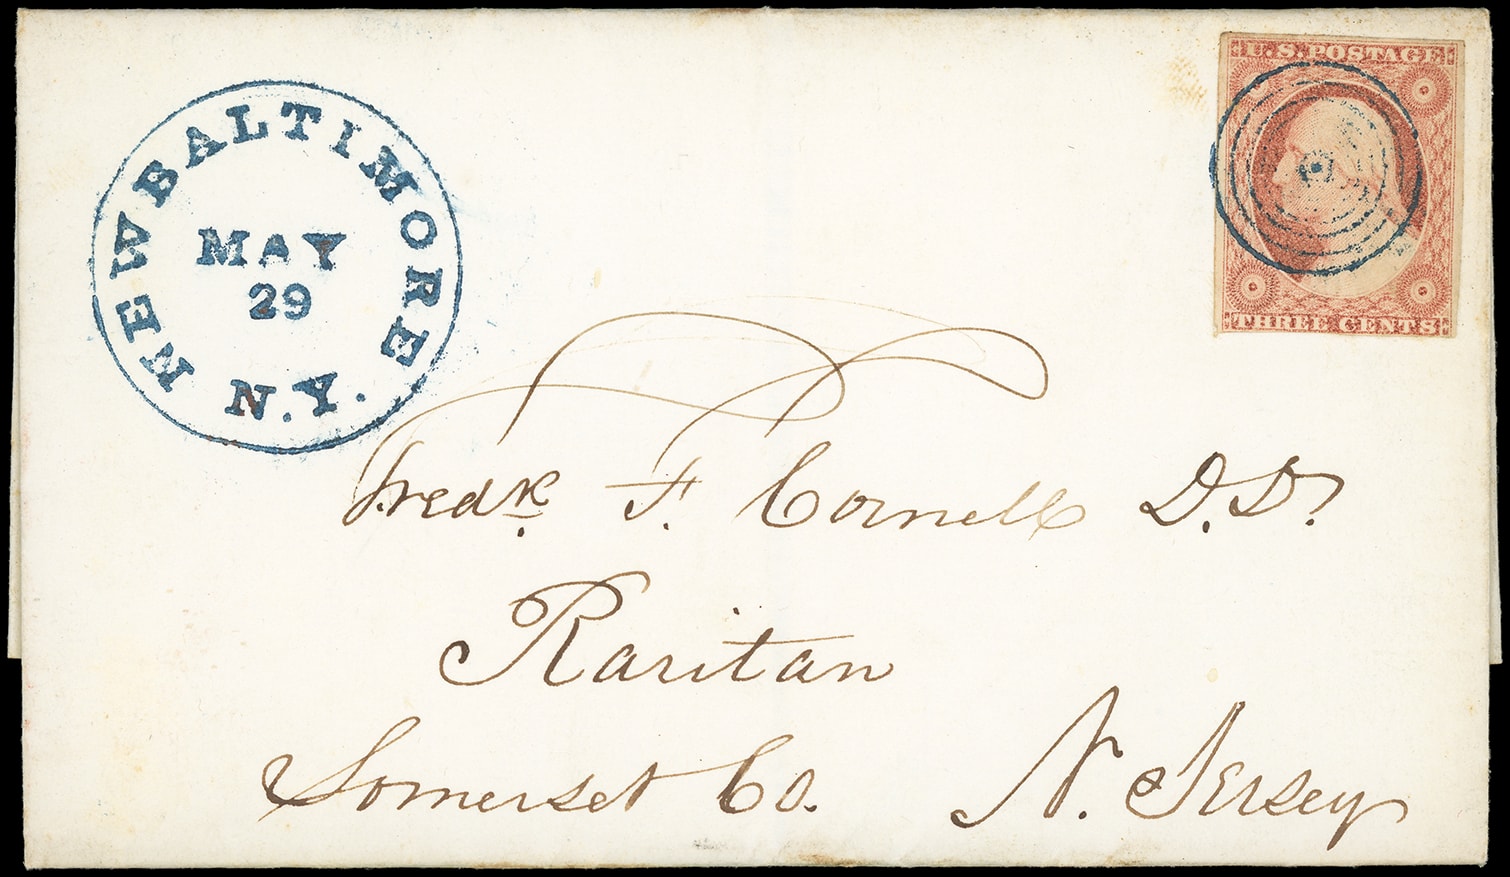 NEW BALTIMORE N.Y.
MAY
29
U.S. POSTAGE
THREE CENTS
Fredk. F. Cornell D.D.
Raritan
Somerset Co. N. Jersey